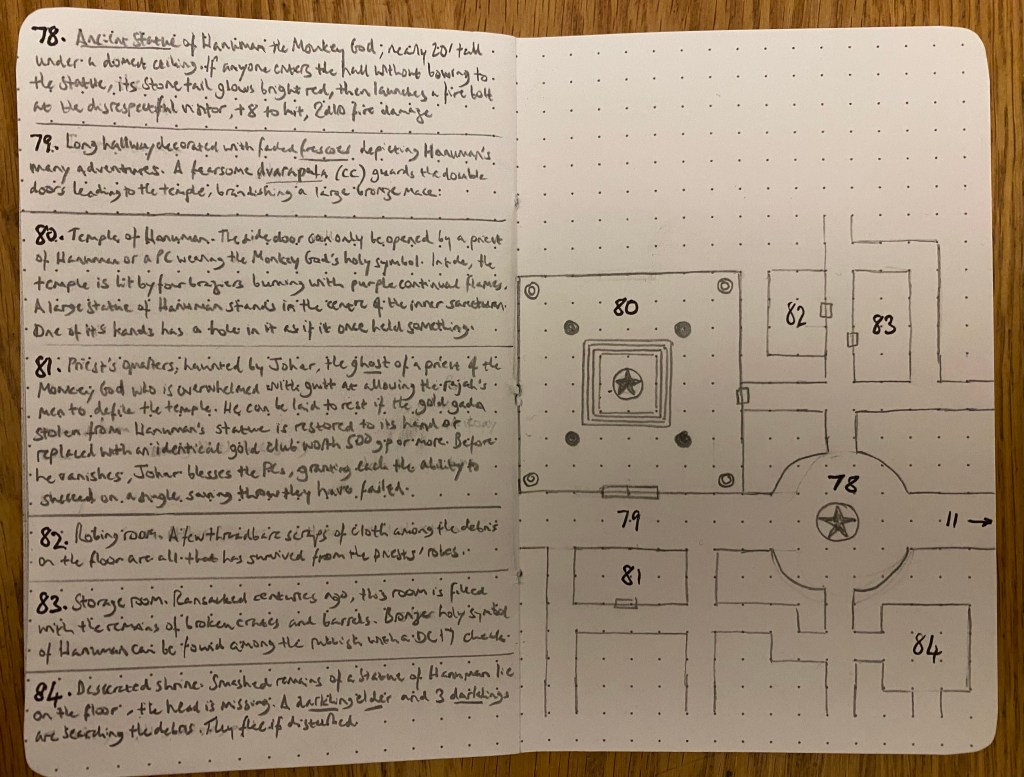 78. Ancient Statue of Hanuman the Monkey God; nearly 20' tall
under a domed ceiling. If anyone enters the hall without bowing to
the statue, its stone tail glows bright red, then launches a fire bolt
at the disrespectful visitor, +8 to hit, 2d10 fire damage
79. Long hallway decorated with faded frescoes depicting Hanuman's
many adventures. A fearsome dvarapala (CC) guards the double
doors leading to the temple, brandishing a large bronze mace.
80. Temple of Hanuman. The side door can only be opened by a priest
of Hanuman or a PC wearing the Monkey God's holy symbol. Inside, the
temple is lit by four braziers burning with purple continual flames.
A large statue of Hanuman stands in the centre of the inner sanctum.
One of its hands has a hole in it as if it once held something.
81. Priest's quarters, haunted by Johar, the ghost of a priest of the
Monkey God who is overwhelmed with guilt at allowing the rajah's
men to defile the temple. He can be laid to rest if the gold gada
stolen from Hanuman's statue is restored to its hand or
replaced with an identical gold club worth 500 gp or more. Before
he vanishes, Johar blesses the PCs, granting each the ability to
succeed on a single saving throw they have failed.
82. Robing room. A few threadbare scraps of cloth among the debris
on the floor are all that has survived from the priests' robes.
83. Storage room. Ransacked centuries ago, this room is filled
with the remains of broken crates and barrels. Bronze holy symbol
of Hanuman can be found among the rubbish with a DC17 check.
84. Desecrated shrine. Smashed remains of a statue of Hanuman lie
on the floor, the head is missing. A darkling elder and 3 darklings
are searching the debris. They flee if disturbed
80
82
83
78
79
11 →
81
84